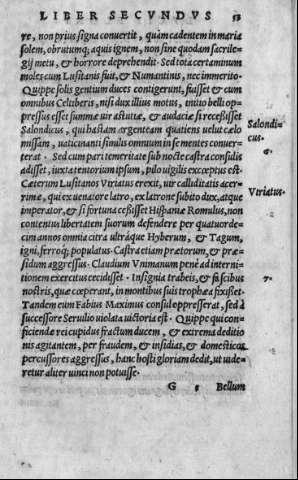 LIBER SECVNDVS 53
re, non prius signa conuertit, quàm cadentem in maria
solem, obrutumq; aquis ignem, non sine quodam sacrile-
gij metu, & horrore deprehendit. Sed tota certaminum
moles cum Lusitanis fuit, & Numantinis, nec immerito.
Quippe solis gentium duces contigerunt, fuisset & cum
omnibus Celtiberis, nisi dux illius motus, initio belli op-
pressus esset summæ uir astutiæ, & audaciæ si recessisset
Salondicus, qui hastam argenteam quatiens uelut cælo
missam, uaticinanti similis omnium in se mentes conuer-
terat. Sed cum pari temeritate sub nocte castra consulis
adisset, iuxta tentorium ipsum, pilo uigilis exceptus est.
Cæterum Lusitanos Viriatus erexit, uir calliditatis acer-
rimæ, qui ex uenatore latro, ex latrone subito dux, atque
imperator, & si fortuna cessisset Hispaniæ Romulus, non
contentus libertatem suorum defendere per quatuorde-
cim annos omnia citra ultráque Hyberum, & Tagum,
igni, ferroq; populatus. Castra etiam prætorum, & præ-
sidum aggressus. Claudium Vnimanum penè ad interni-
tionem exercitus cecidisset. Insignia trabeis, & fascibus
nostris, quæ cœperant, in montibus suis trophæa fixisset.
Tandem eum Fabius Maximus consul oppresserat, sed à
successore Seruilio uiolata uictoria est. Quippe qui con-
ficiendæ rei cupidus fractum ducem, & extrema deditio
nis agitantem, per fraudem, & insidias, & domesticos
percussores aggressus, hanc hosti gloriam dedit, ut uide-
retur aliter uinci non potuisse.
G 5 Bellum
Salondi-
cus.
Viriatus.